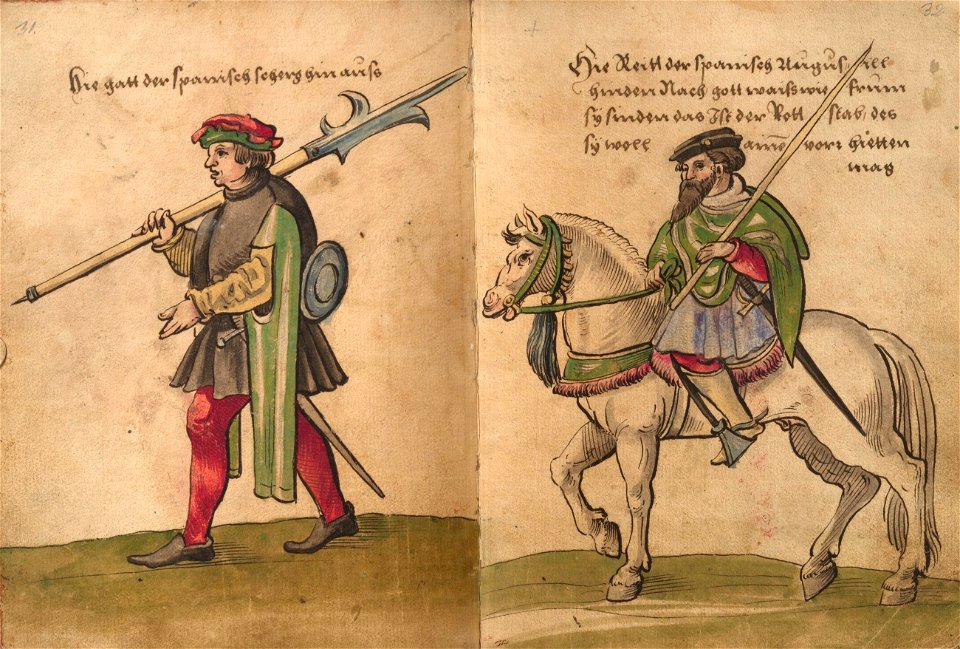 31.
Hie gatt der spanisch scherg hin auss
32
Hie Reitt der spanisch Augusill
hinden Nach gott waiss wie frum
sy sinden das Ist der Rott stab des
sy woll vorr hietten
mag